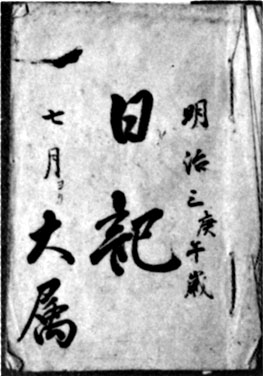 明治三庚午歳
日記
一七月ヨリ
大属